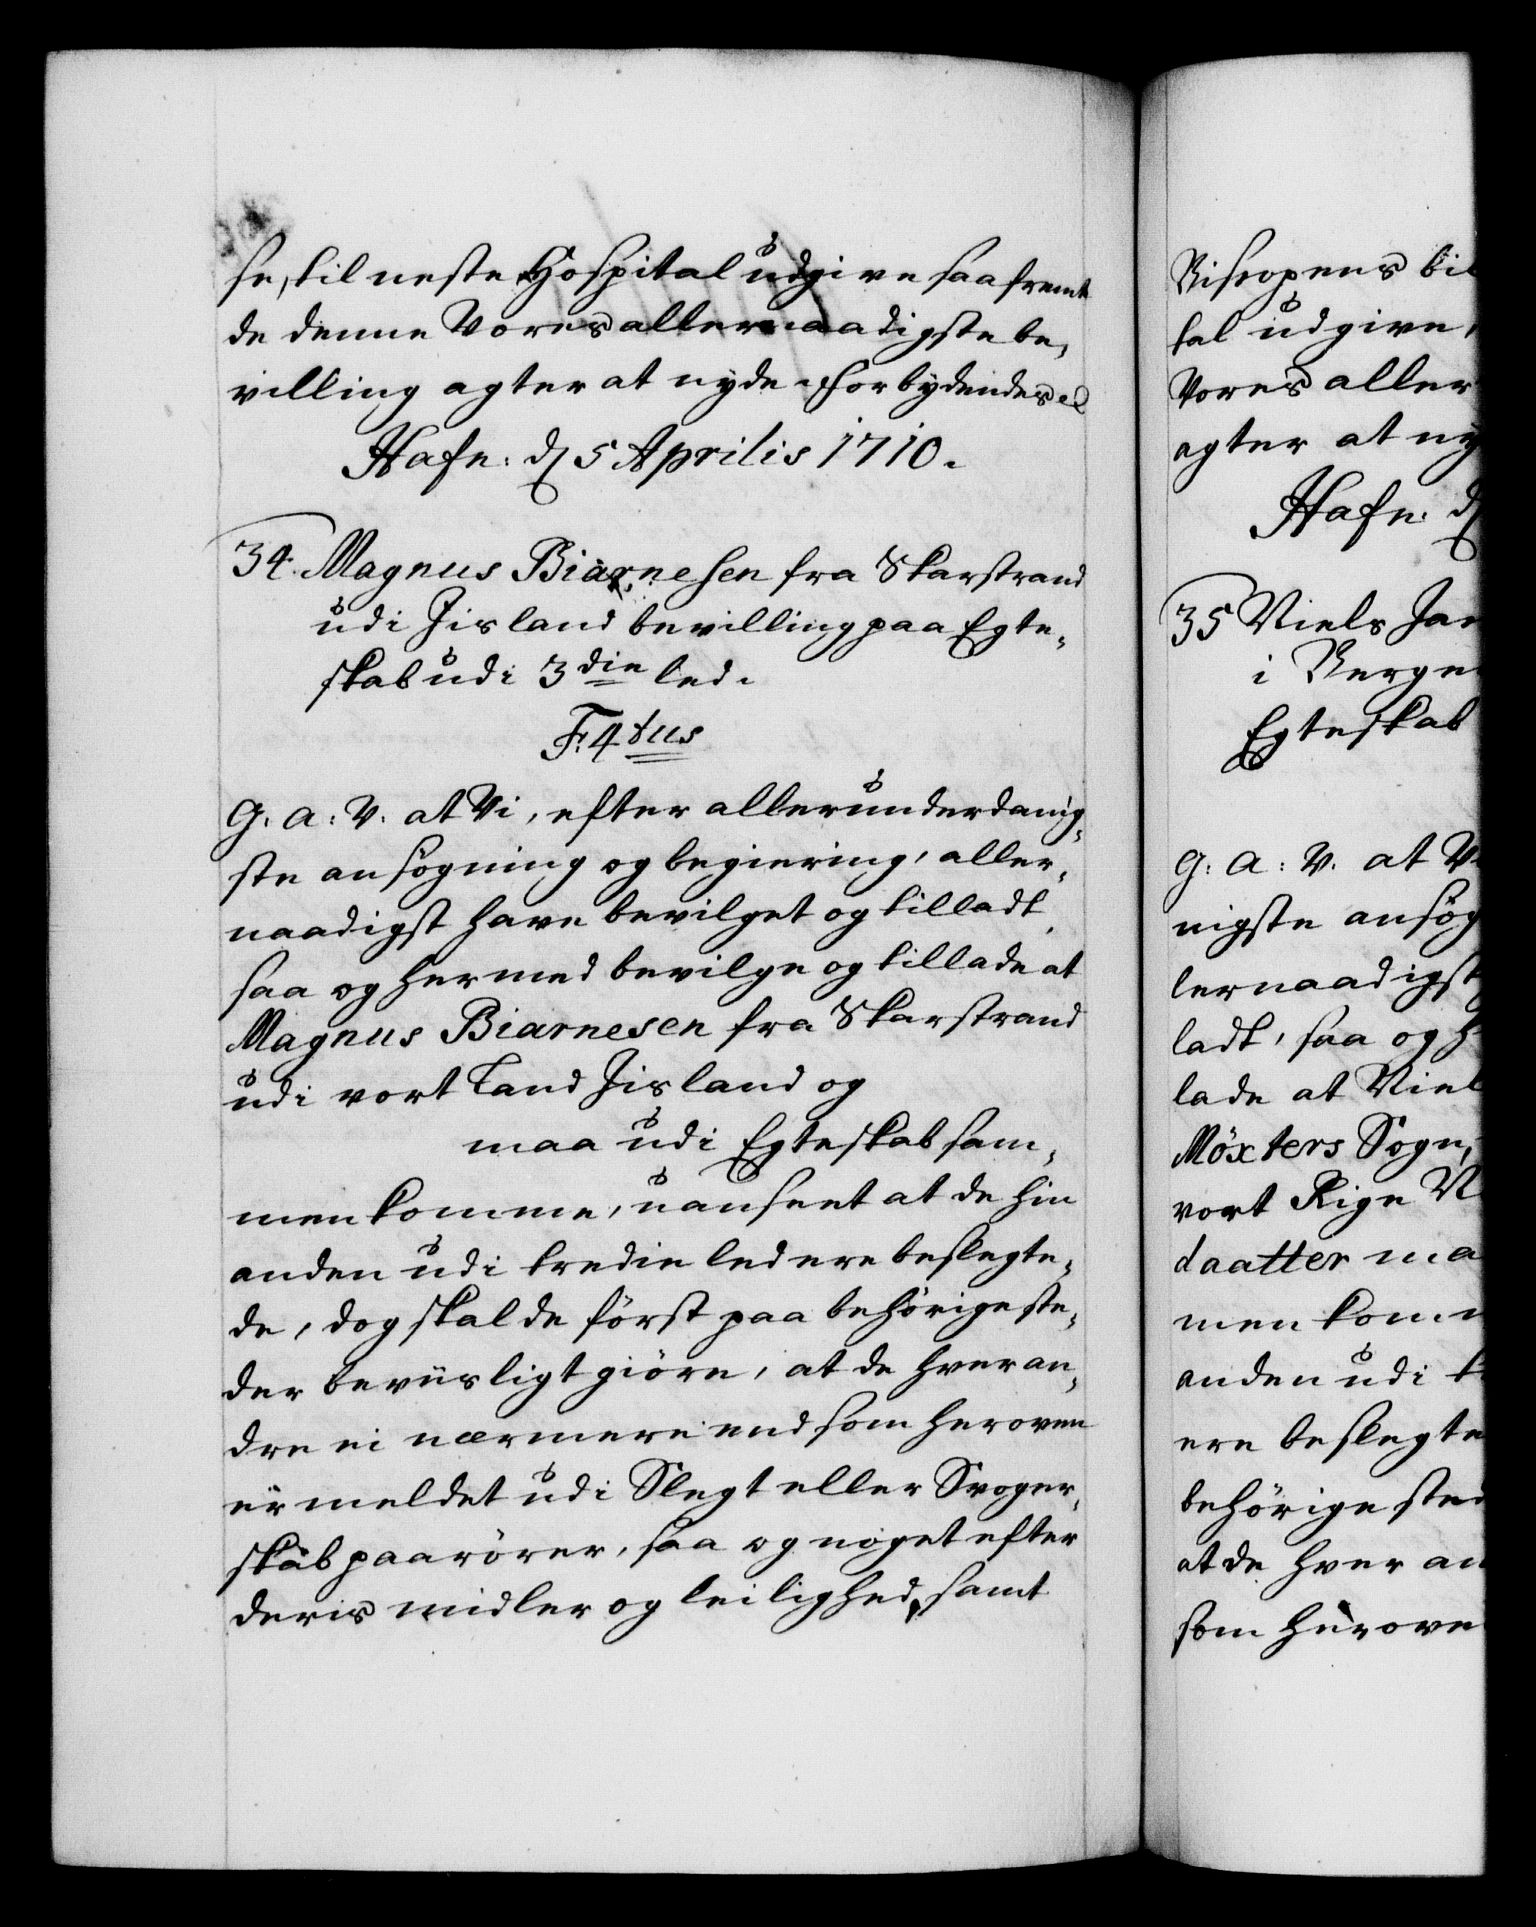 se, til neste Hospital udgive saafremt
de denne Vores allernaadigste be-
villing agter at nyde. Forbydendes &c
Hafn: d 5 Aprilis 1710.
34. Magnus Biarnesen fra Skarstrand
udi Jisland bevilling paa Egte-
skab udi 3die led.
F: 4tus
G. A: V. at Vi, efter allerunderdanig-
ste ansögning og begiering, aller-
naadigst have bevilget og tilladt
saa og hermed bevilge og tillade at
Magnus Biarnesen fra Skarstrand
udi vort Land Jisland og
maa udi Egteskab sam-
menkomme, uanseet at de hin
anden udi tredie led ere beslegte-
de, dog skal de först paa behörige ste-
der beviisligt giöre, at de hveran-
dre ei nærmere end som heroven
er meldet udi Slegt eller Svoger-
skab paarörer, saa og noget efter
deris midler og leilighed, samt
Biscopens bil
tal udgive,
Vores aller
agter at ny
Hafn: d
35 Niels Jan
i Berge
Egteskab
G: A: V. at V
nigste ansög
lernaadigst
ladt, saa og h
lade at Niel
Möxters Sogn,
vort Rige N
daatter ma
men kom
anden udi t
ere beslegte
behörige sted
at de hver an
som herove